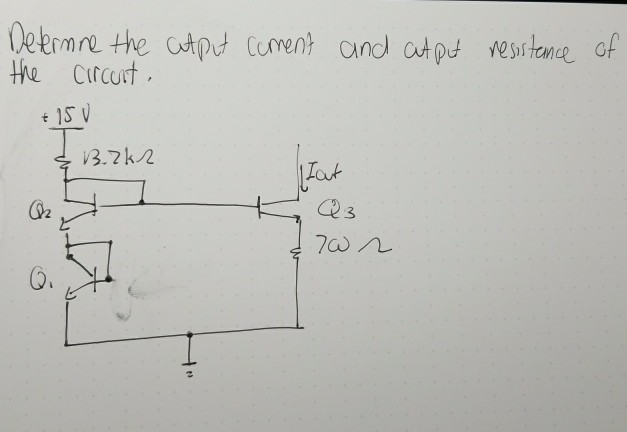 Determine the output current and output resistance of
the circuit.
+ 15 V
13.7kΩ
Iout
Q2
Q3
700 Ω
Q1